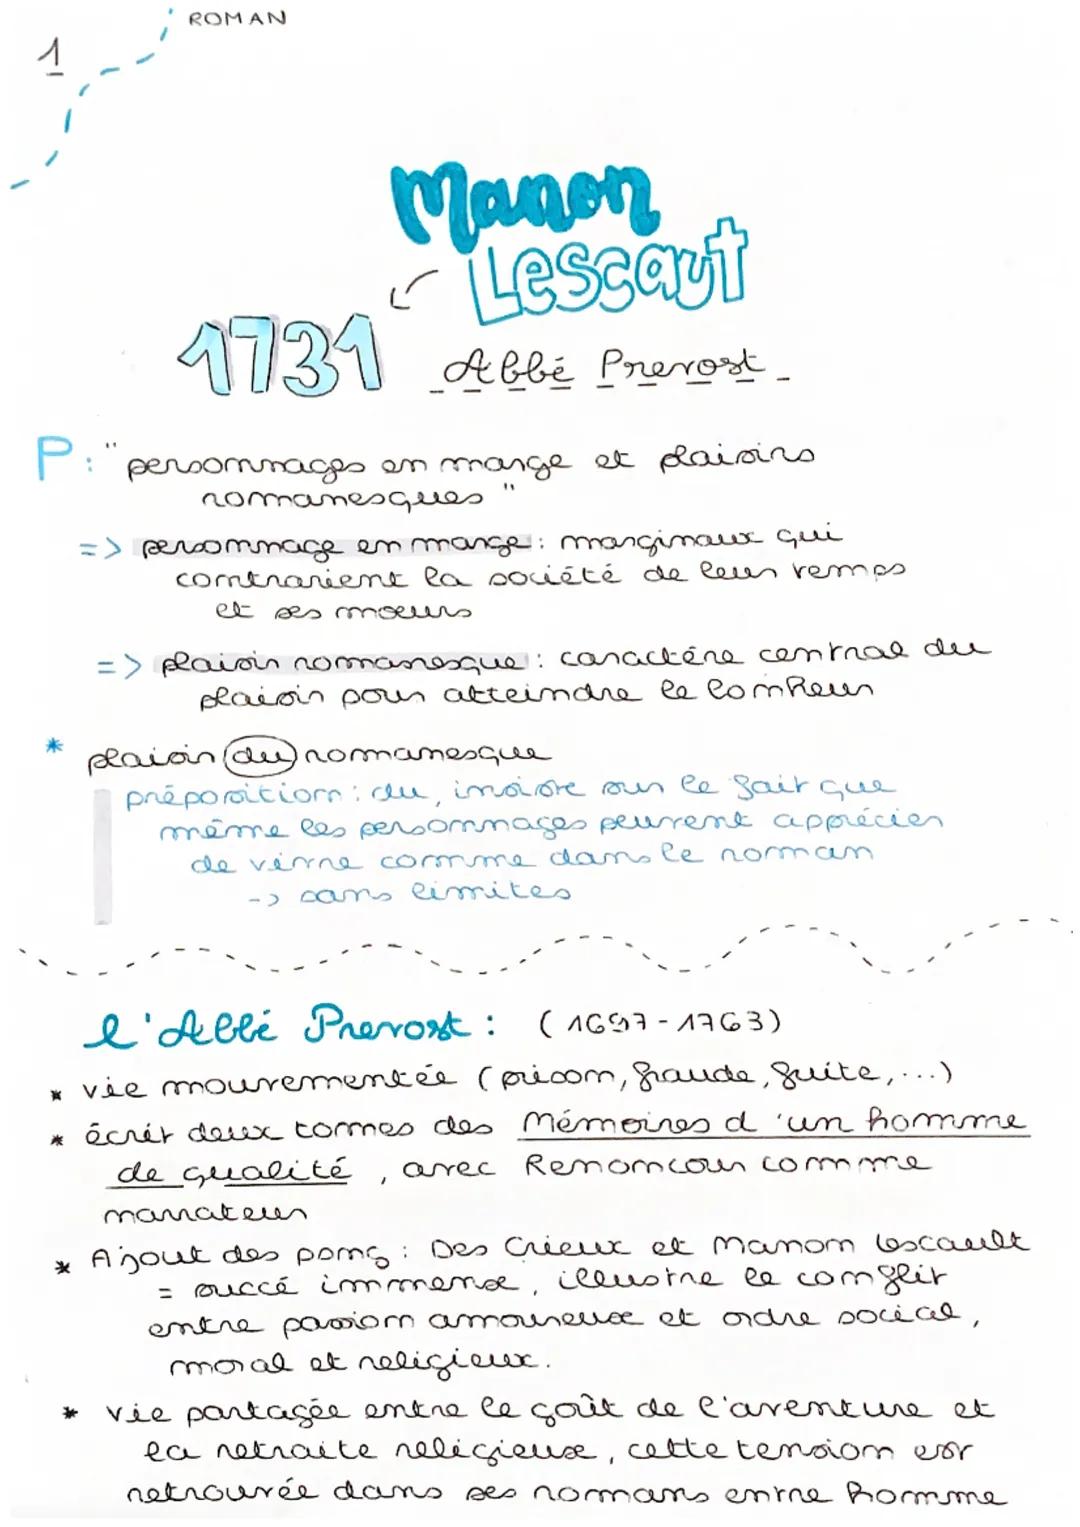 ROMAN
1
Manon
Lescaut
1731
Abbé Prevost
P: "personnages en marge et plaisirs
romanesques"
=> personnage en marge : marginaux qui
contrarient la société de leur temps
et ses moeurs
=> plaisir romanesque : caractère central du
plaisir pour atteindre le bonheur
* plaisir du romanesque
préposition : du, insiste sur le fait que
même les personnages peuvent apprécier
de vivre comme dans le roman
-> sans limites
l'Abbé Prevost : (1697-1763)
* vie mouvementée (prison, fraude, fuite, ...)
* écrit deux tomes des Mémoires d'un homme
de qualité, avec Renoncour comme
narrateur
* Ajout des pers : Des Grieux et Manon Lescault
= succé immense, illustre le conflit
entre passion amoureuse et ordre social,
moral et religieux.
* vie partagée entre le goût de l'aventure et
la retraite religieuse, cette tension est
retrouvée dans ses romans entre homme